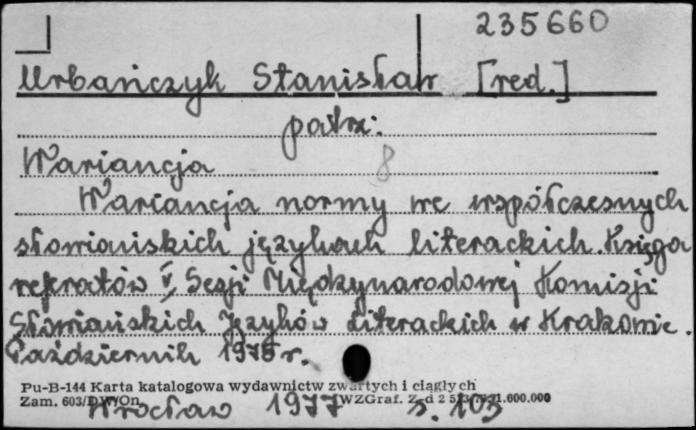 235660
Urbańczyk Stanisław [red.]
patrz:
Wariancja 8
Wariancja normy we współczesnych
słowiańskich językach literackich. Księga
referatów V Sesji Międzynarodowej Komisji
Słowiańskich Języków Literackich w Krakowie.
Październik 1976 r.
Pu-B-144 Karta katalogowa wydawnictw zwartych i ciągłych
Zam. 603/ WZGraf. 1.600.000
Wrocław 1977 s. 103